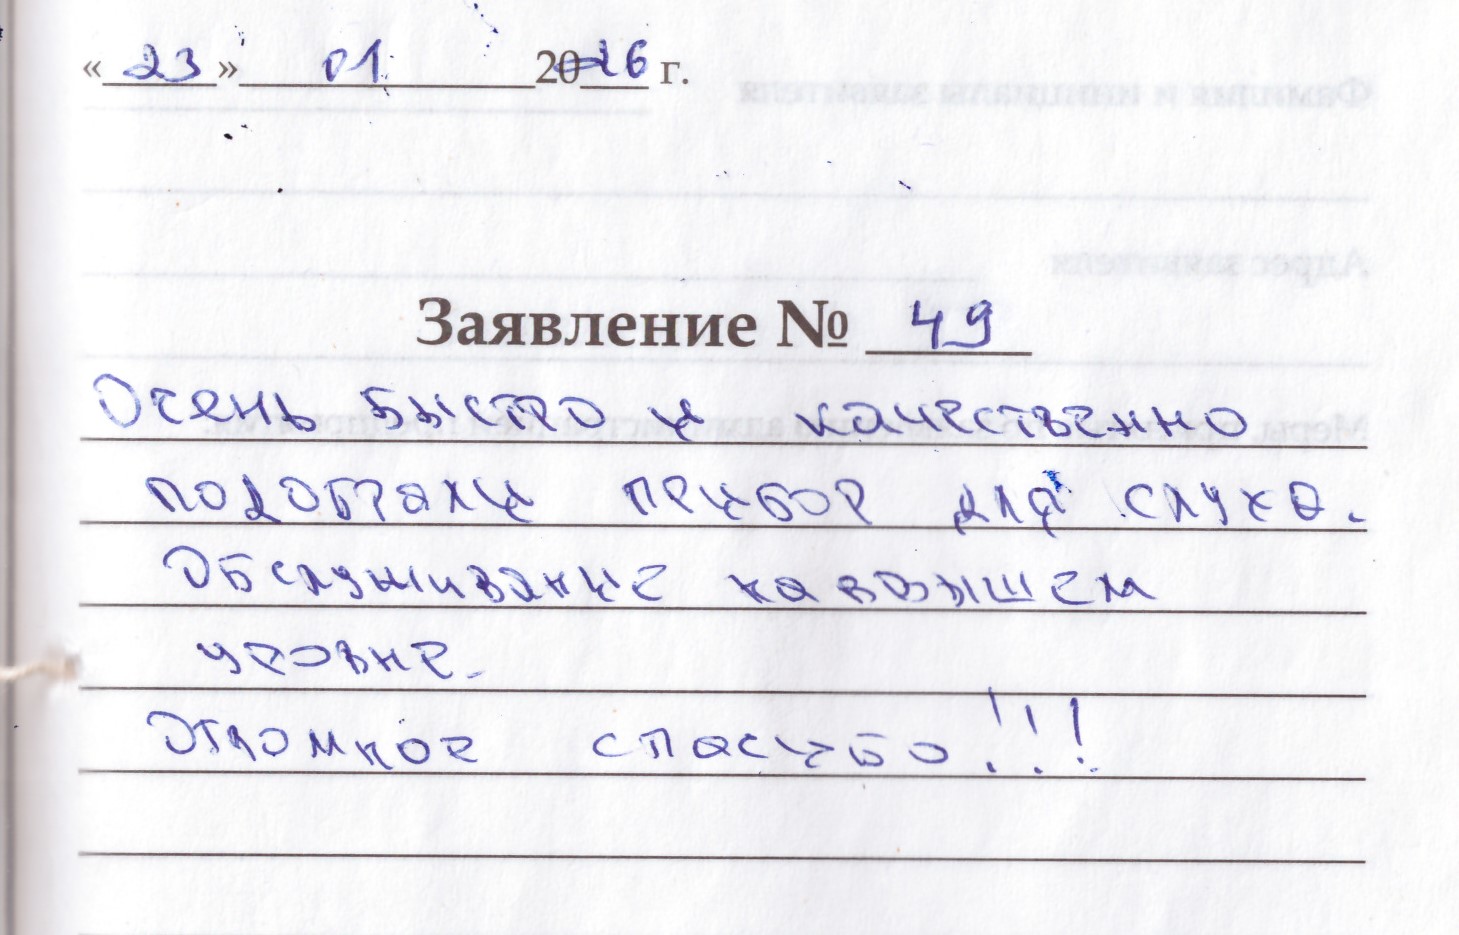 «23» 01 2026 г.
Заявление № 49
Очень быстро и качественно
подобрали прибор для слуха.
Обслуживание на высшем
уровне.
Огромное спасибо!!!